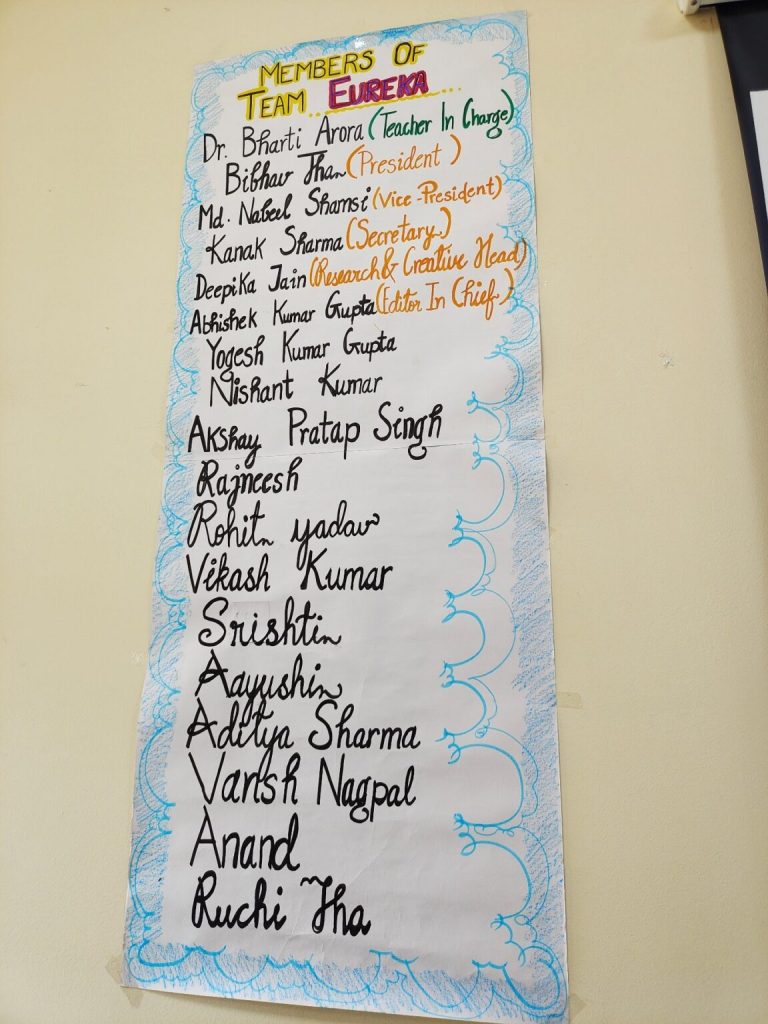 MEMBERS OF
TEAM ...EUREKA...
Dr. Bharti Arora (Teacher In Charge)
Bibhav Jha (President)
Md. Nabeel Shamsi (Vice-President)
Kanak Sharma (Secretary)
Deepika Jain (Research & Creative Head)
Abhishek Kumar Gupta (Editor In Chief)
Yogesh Kumar Gupta
Nishant Kumar
Akshay Pratap Singh
Rajneesh
Rohit yadav
Vikash Kumar
Srishti
Aayushi
Aditya Sharma
Vansh Nagpal
Anand
Ruchi Jha